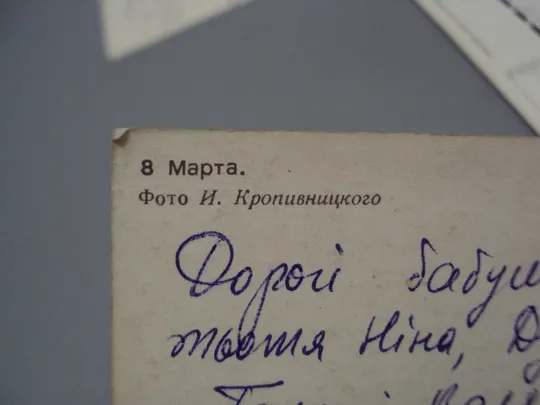 8 Марта.
Фото И. Кропивницкого
Дорогі бабуш
тьотя Ніна, Д